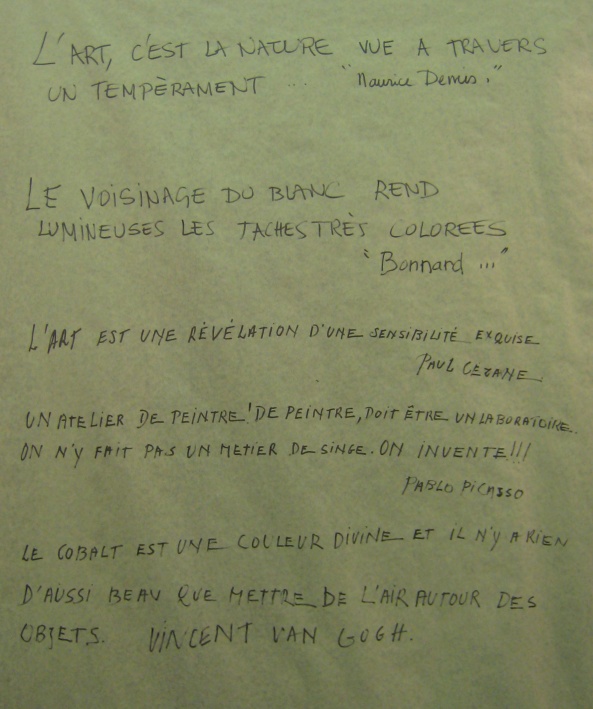 L'ART, C'EST LA NATURE VUE A TRAVERS
UN TEMPÈRAMENT ... "Maurice Denis."
LE VOISINAGE DU BLANC REND
LUMINEUSES LES TACHES TRÈS COLOREES
"Bonnard ..."
L'ART EST UNE RÉVÉLATION D'UNE SENSIBILITÉ EXQUISE
PAUL CEZANE
UN ATELIER DE PEINTRE! DE PEINTRE, DOIT ÊTRE UN LABORATOIRE.
ON N'Y FAIT PAS UN METIER DE SINGE. ON INVENTE!!!
PABLO PICASSO
LE COBALT EST UNE COULEUR DIVINE ET IL N'Y A RIEN
D'AUSSI BEAU QUE METTRE DE L'AIR AUTOUR DES
OBJETS. VINCENT VAN GOGH.